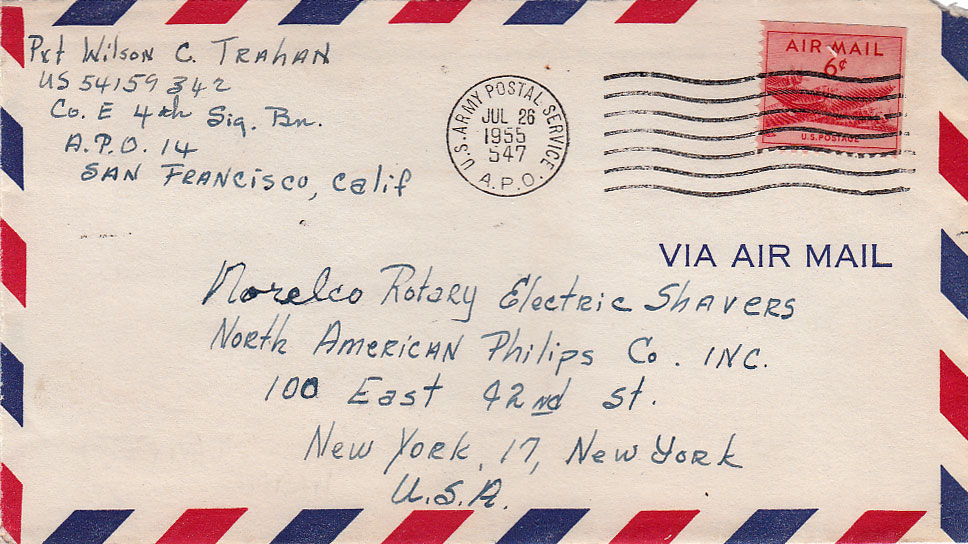 Pvt Wilson C. Trahan
US 54159342
Co. E 4th Sig. Bn.
A.P.O. 14
San Francisco, Calif
U.S. ARMY POSTAL SERVICE
JUL 26
1955
547
A.P.O.
AIR MAIL
6¢
U.S. POSTAGE
VIA AIR MAIL
Norelco Rotary Electric Shavers
North American Philips Co. INC.
100 East 42nd St.
New York, 17, New York
U.S.A.